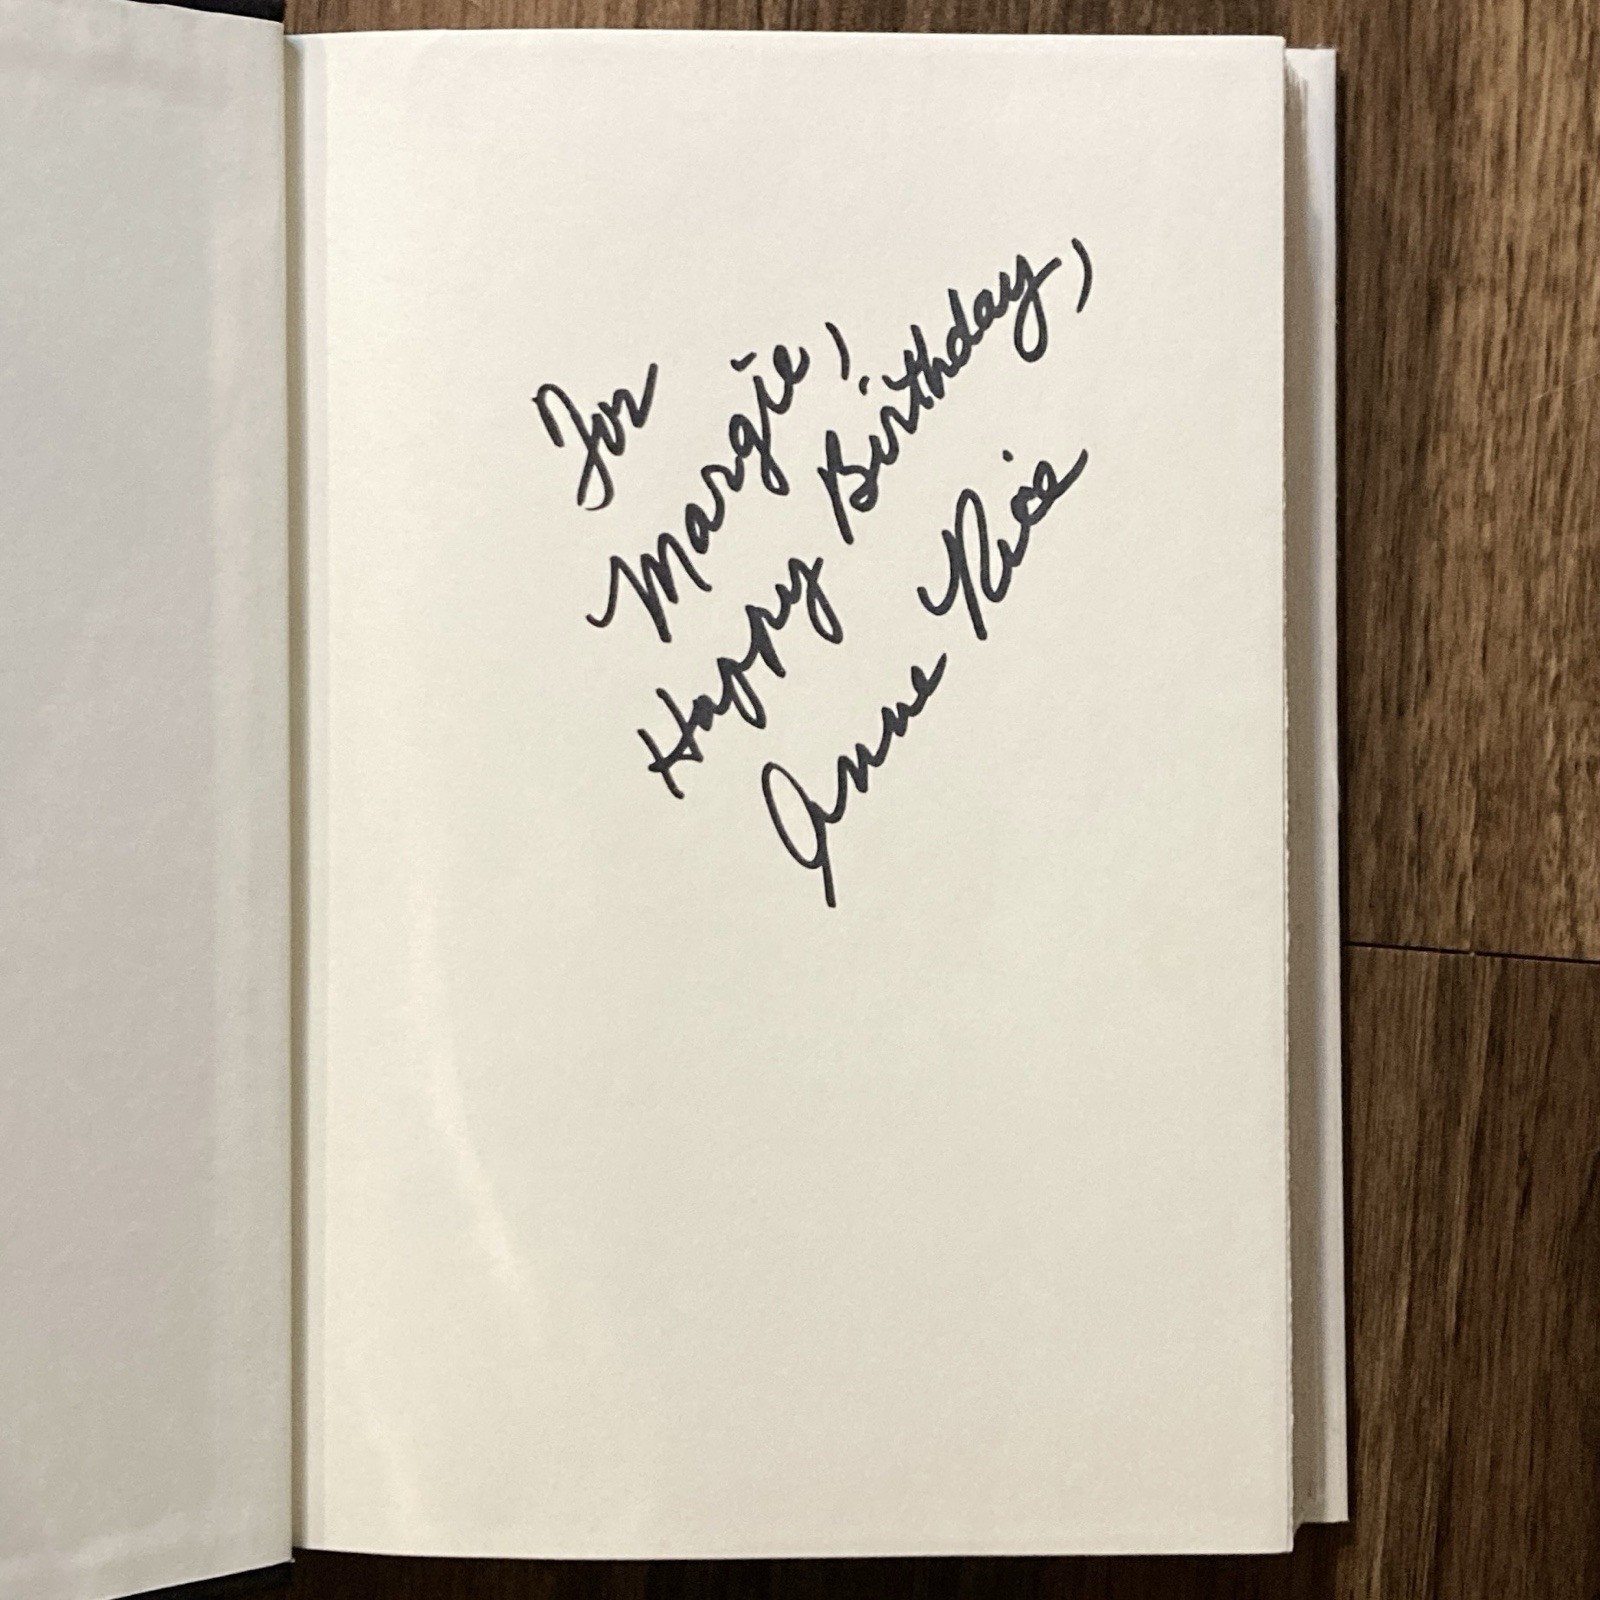 For
Margie,
Happy Birthday,
Anne Rice